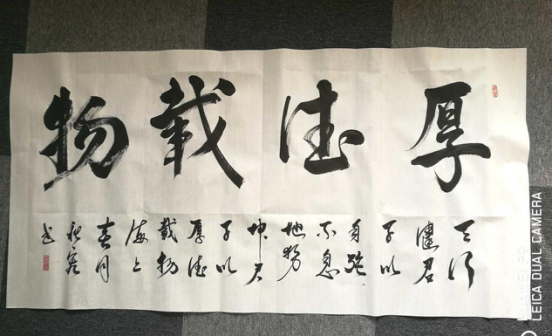 厚德載物
天行
健君
子以
自強
不息
地勢
坤君
子以
厚德
載物
海上
書
LEICA DUAL CAMERA